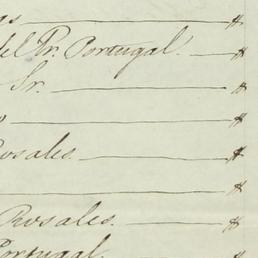 as
del Pr. Portugal.
Sr.
o
Rosales.
Rosales.
Portugal.